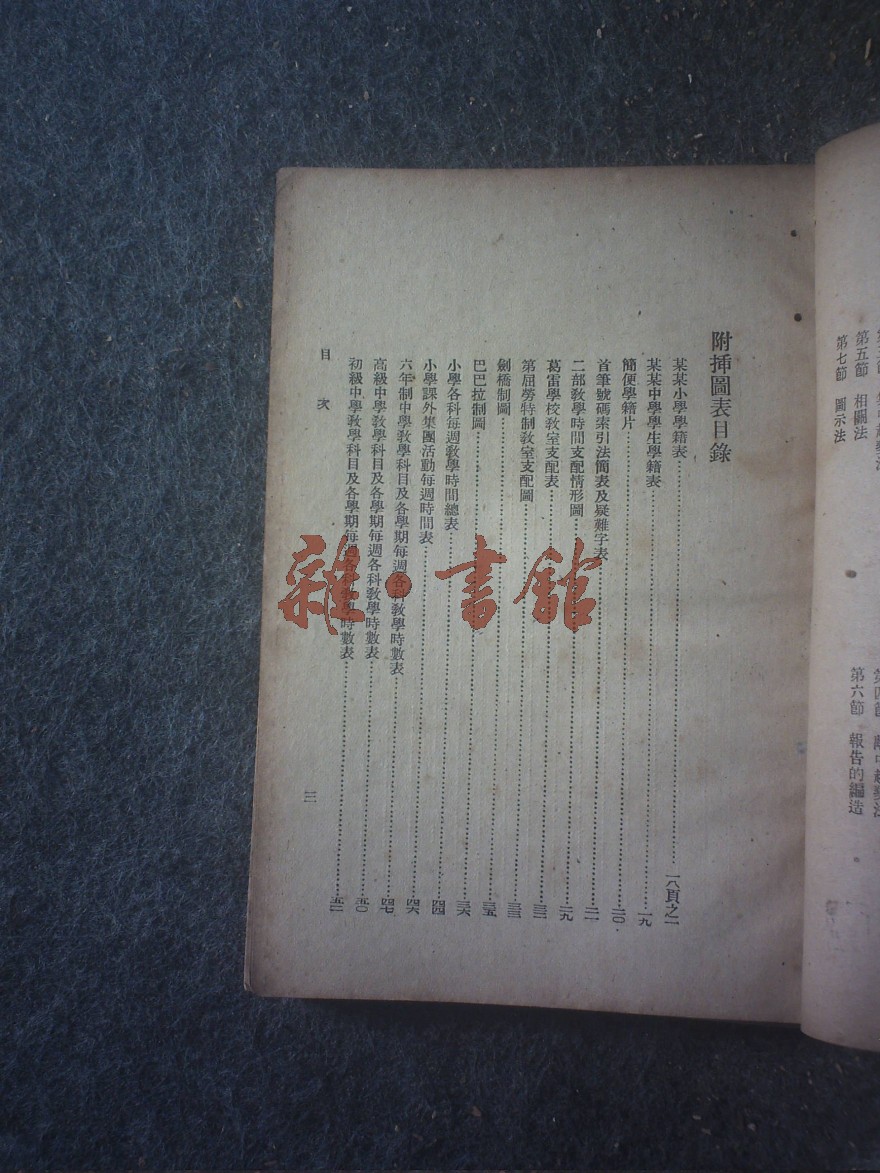 第五節　相關法
第七節　圖示法
第六節　報告的編造
附挿圖表目錄
某某小學學籍表……一八頁之一
某某中學學生學籍表……一九
簡便學籍片……二〇
首筆號碼索引法簡表及疑難字表……二一
二部教學時間支配情形圖……二九
葛雷學校教室支配表……三二
第屈勞特制教室支配圖……三三
劍橋制圖……三三
巴巴拉制圖……三五
小學各科每週教學時間總表……三六
小學課外集團活動每週時間表……四四
六年制中學教學科目及各學期每週各科教學時數表……四六
高級中學教學科目及各學期每週各科教學時數表……四七
初級中學教學科目及各學期每週各科教學時數表……五〇
目　次
三
雜·書館